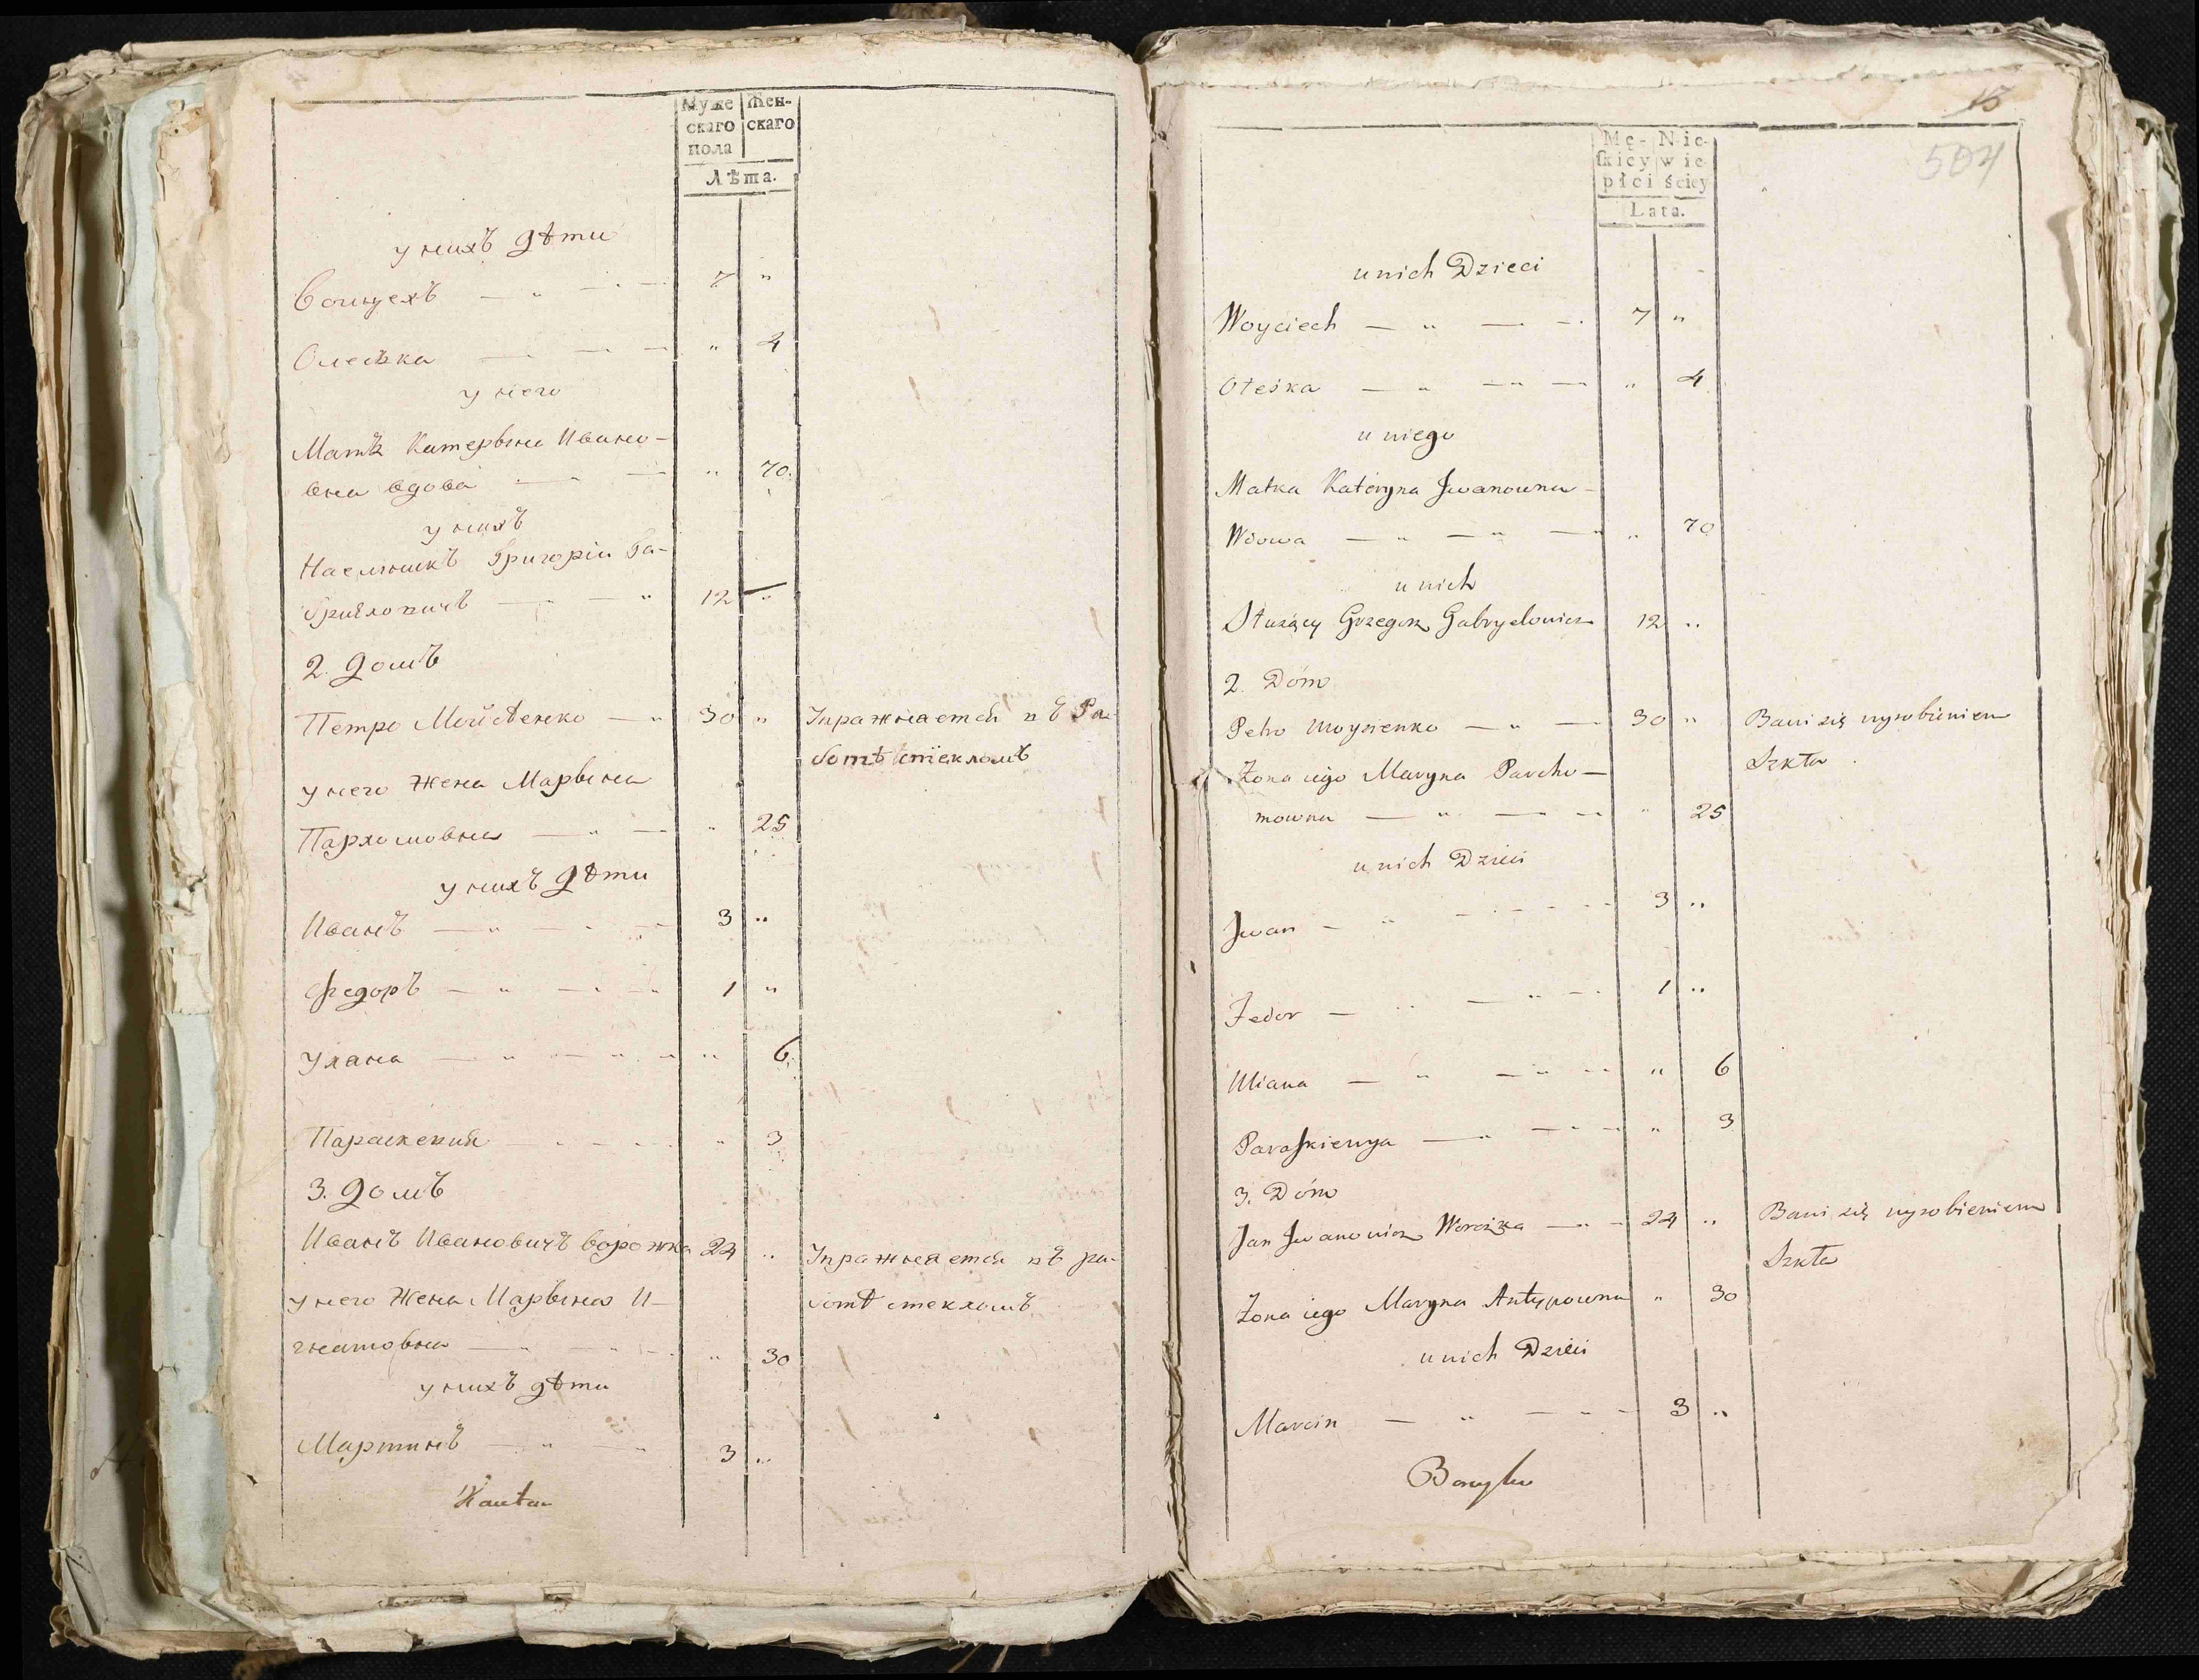 Муже Жен-
скаго скаго
пола
Лѣта.
у нихъ дѣти
Войцехъ 7 "
Олеська " 4
у него
Мать Катерына Ивано-
вна вдова " 70
у нихъ
Наемникъ Григорій Га-
бриловичъ 12 "
2. Домъ
Петро Мойсѣенко 30 " Упражняется въ Ра-
ботѣ стекломъ
у него Жена Марына
Пархомовна " 25
у нихъ Дѣти
Иванъ 3 "
Федоръ 1 "
Уляна " 6
Параскевия " 3
3. Домъ
Иванъ Ивановичъ Ворожка 24 " Упражняется въ ра-
ботѣ стекломъ
у него Жена Марына И-
гнатовна " 30
у нихъ дѣти
Мартинъ 3 "
15
504
Mę- Nie-
ſkiey wie-
płci ściey
Lata.
u nich Dzieci
Woyciech 7 "
Oleśka " 4
u niego
Matka Kateryna Jwanowna
Wdowa " 70
u nich
Służący Grzegorz Gabryelowicz 12 "
2. Dóm
Petro Moysienko 30 " Bawi się wyrobieniem
Szkła
Żona iego Maryna Parcho-
mowna " 25
u nich Dzieci
Jwan 3 "
Fedor 1 "
Uliana " 6
Paraſkiewya " 3
3. Dóm
Jan Jwanowicz Worożka 24 " Bawi się wyrobieniem
Szkła
Żona iego Maryna Antypowna " 30
u nich Dzieci
Marcin 3 "